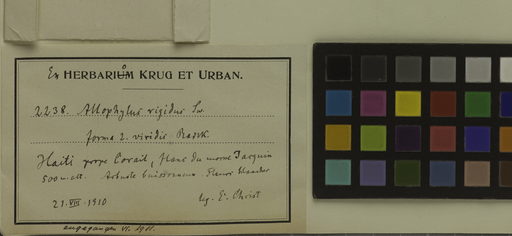 Ex HERBARIO KRUG ET URBAN.
2238. Allophylus rigidus Sw.
forma 2. viridis Radlk.
Haiti Corail, flanc du morne
500 m alt. Arbuste buissonneux Fleurs blanches
21.VIII.1910 leg. E. Christ
eingegangen VI. 1911.